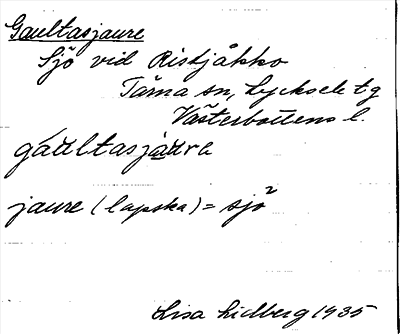 Gaultasjaure
Sjö vid Ristjåkko
Tärna sn, Lycksele tg
Västerbottens l.
gáu̯ltasjàu̯ra
jaure (lapska) = sjö²
Lisa Lidberg 1935